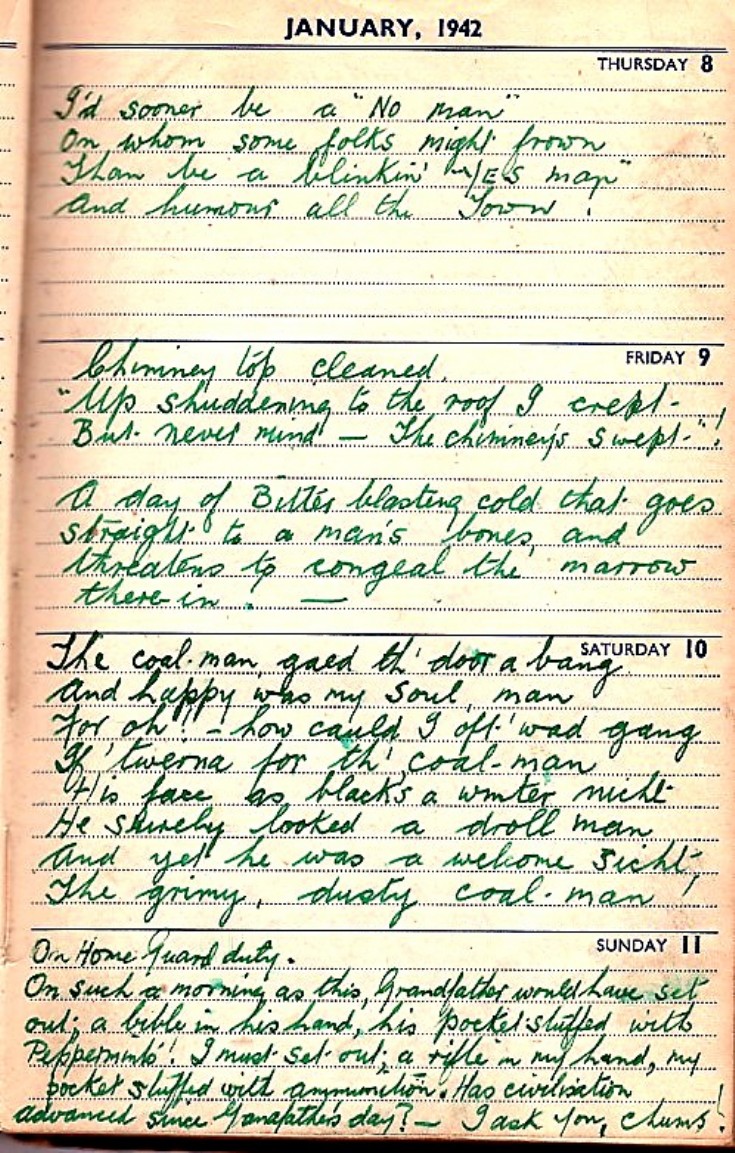 JANUARY, 1942
THURSDAY 8
I'd sooner be a "No man"
On whom some folks might frown
Than be a blinkin' "YES man"
And humour all the Town !
FRIDAY 9
Chimney top cleaned.
"Up shuddering to the roof I crept -
But never mind — The chimney's swept -" !
A day of Bitter blasting cold that goes
straight to a man's bones, and
threatens to congeal the marrow
there-in . —
SATURDAY 10
The coal-man, gaed th' door a bang
And happy was my soul, man
For oh! - how could I oft' wad gang
If 'twerna for th' coal-man
His face as black's a winter nicht
He surely looked a droll man
And yet he was a welcome sicht,
The grimy, dusty coal-man !
SUNDAY 11
On Home Guard duty.
On such a morning as this, Grandfather would have set
out; a bible in his hand, his pocket stuffed with
Peppermints! I must set out; a rifle in my hand, my
pocket stuffed with ammunition. Has civilisation
advanced since Grandfather's day? — I ask you, chums !